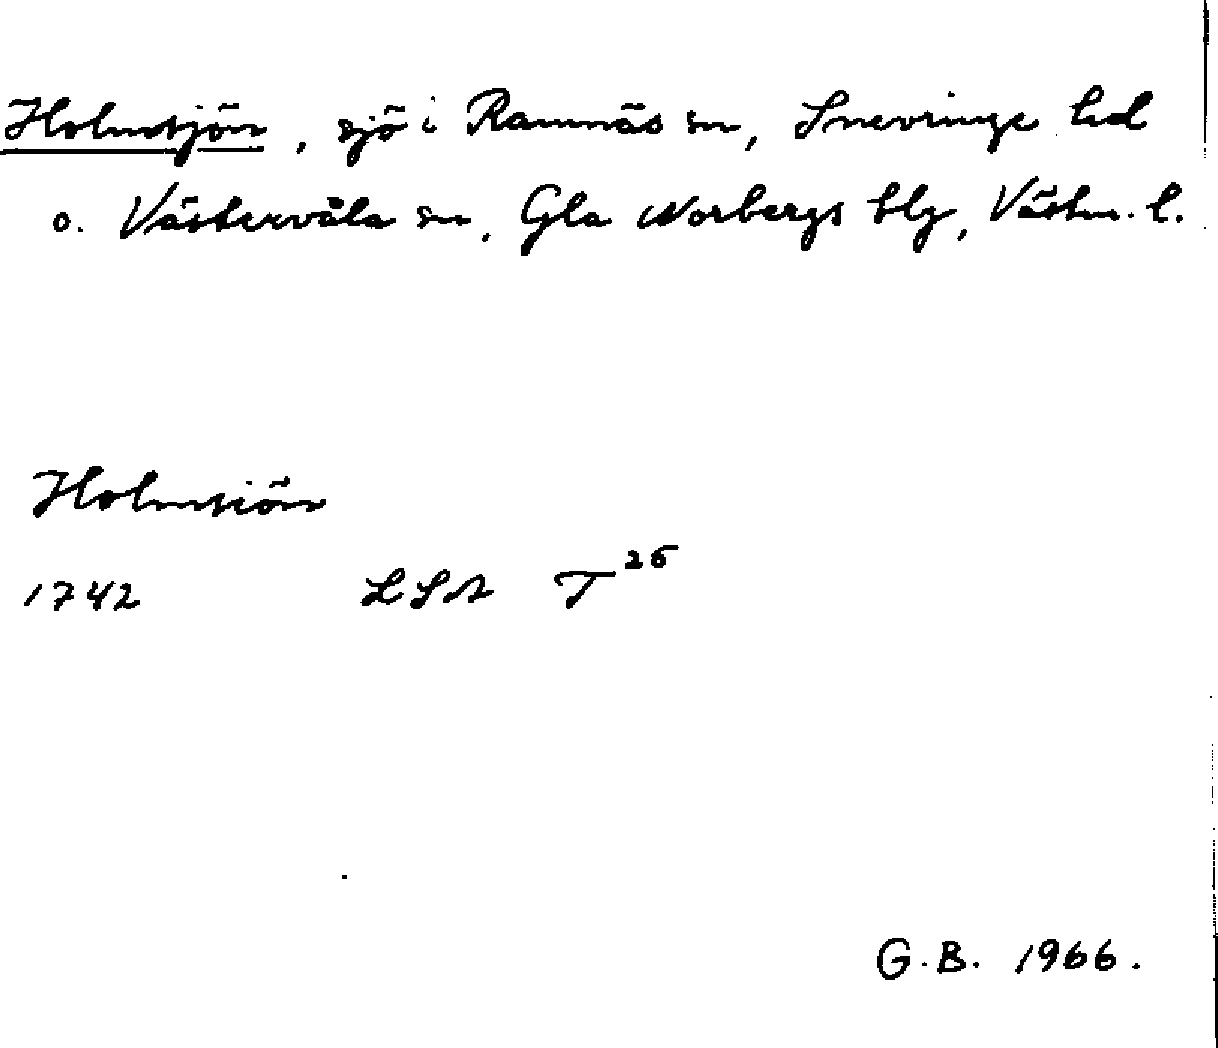 Holmsjön, sjö i Ramnäs sn, Snevringe hd
o. Västervåla sn, Gla Norbergs blg, Västm. l.
Holmsiön
1742 LSA T 26
G.B. 1966.